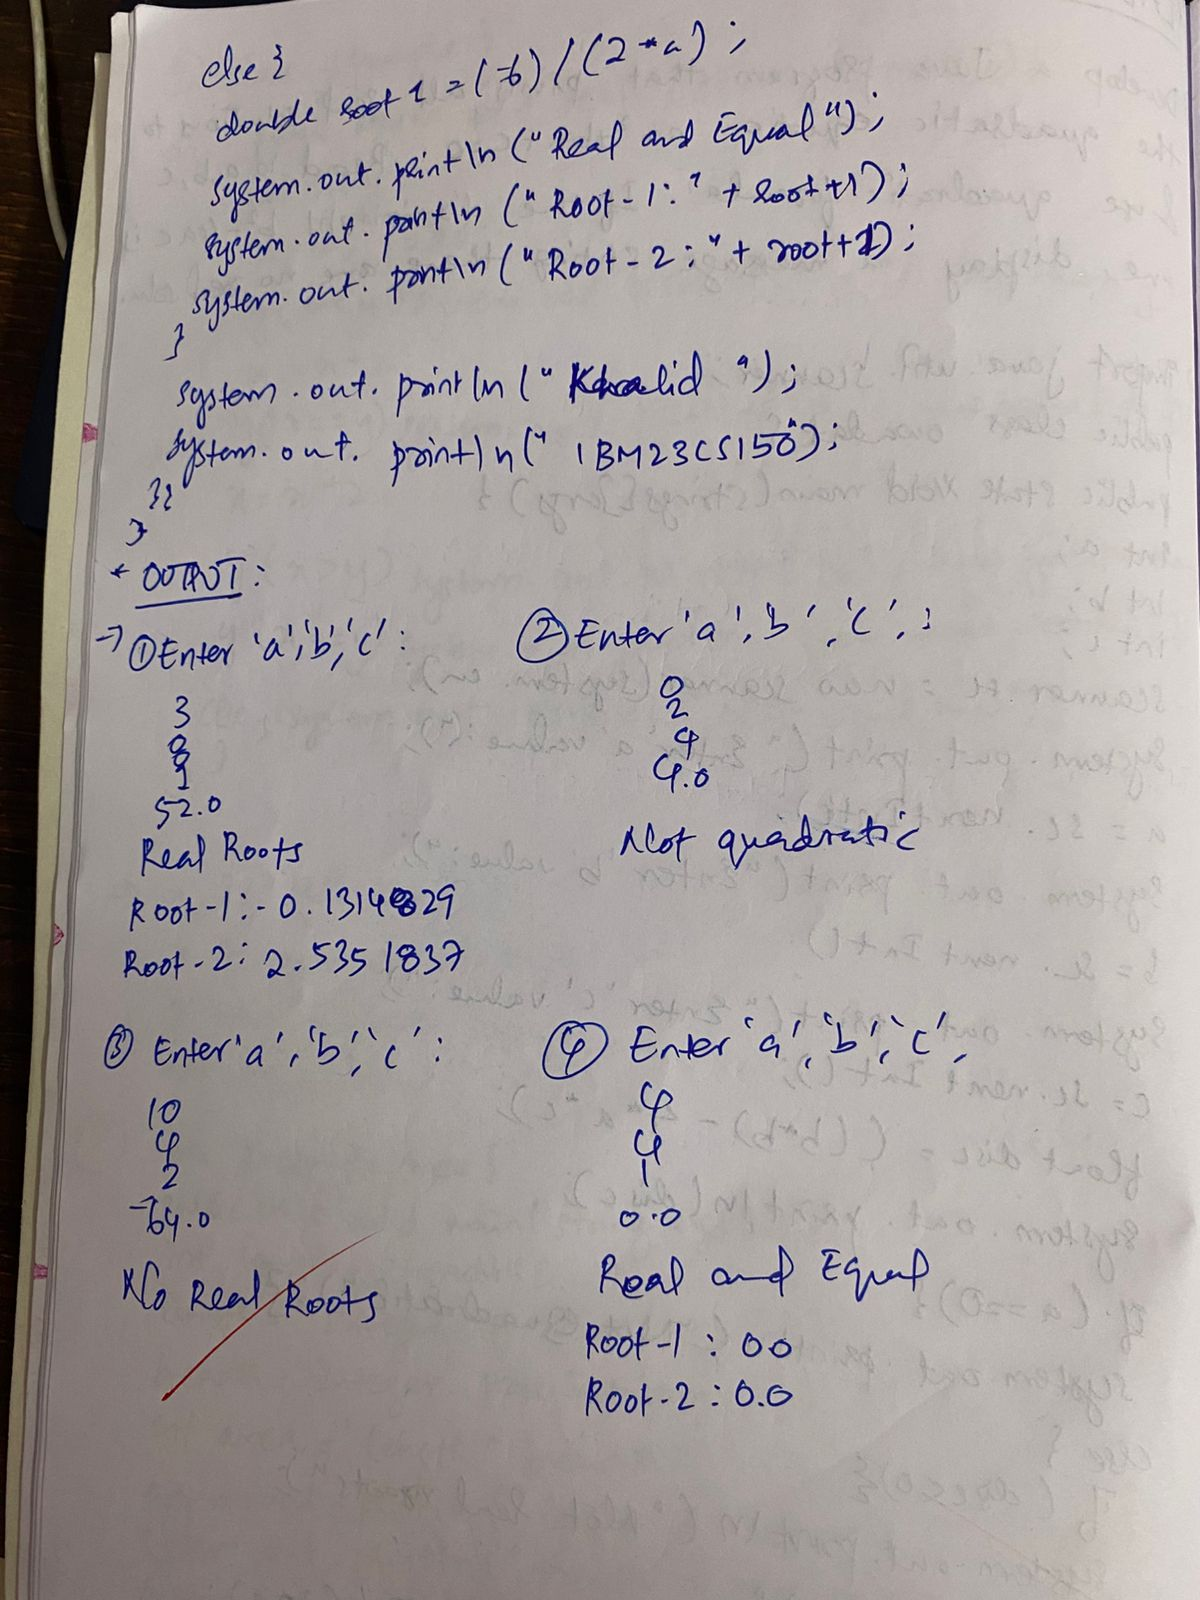 else {
double root 1 = (-b) / (2*a) ;
system.out.println ("Real and Equal");
system.out.println ("Root-1:" + root+1);
system.out.println ("Root-2:" + root+1);
}
system.out.println (" Khalid ");
system.out.println (" 1BM23CS150");
}}
}
* OUTPUT :
→ ① Enter 'a','b','c' :
3
1
52.0
Real Roots
Root-1:-0.1314829
Root-2: 2.5351837
② Enter 'a','b','c', :
0
2
4
4.0
Not quadratic
③ Enter 'a','b','c' :
10
4
2
-64.0
No Real Roots
④ Enter 'a','b','c',
4
4
1
0.0
Real and Equal
Root-1 : 00
Root-2 : 0.0